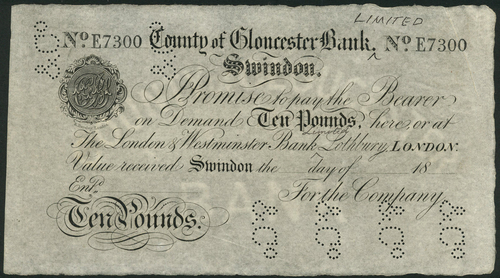 LIMITED
No E7300 County of Gloucester Bank, No E7300
Swindon.
I Promise to pay the Bearer
on Demand Ten Pounds, here, or at
Limited
The London & Westminster Bank Lothbury, LONDON.
Value received Swindon the day of 18
Entd.
For the Company
Ten Pounds.